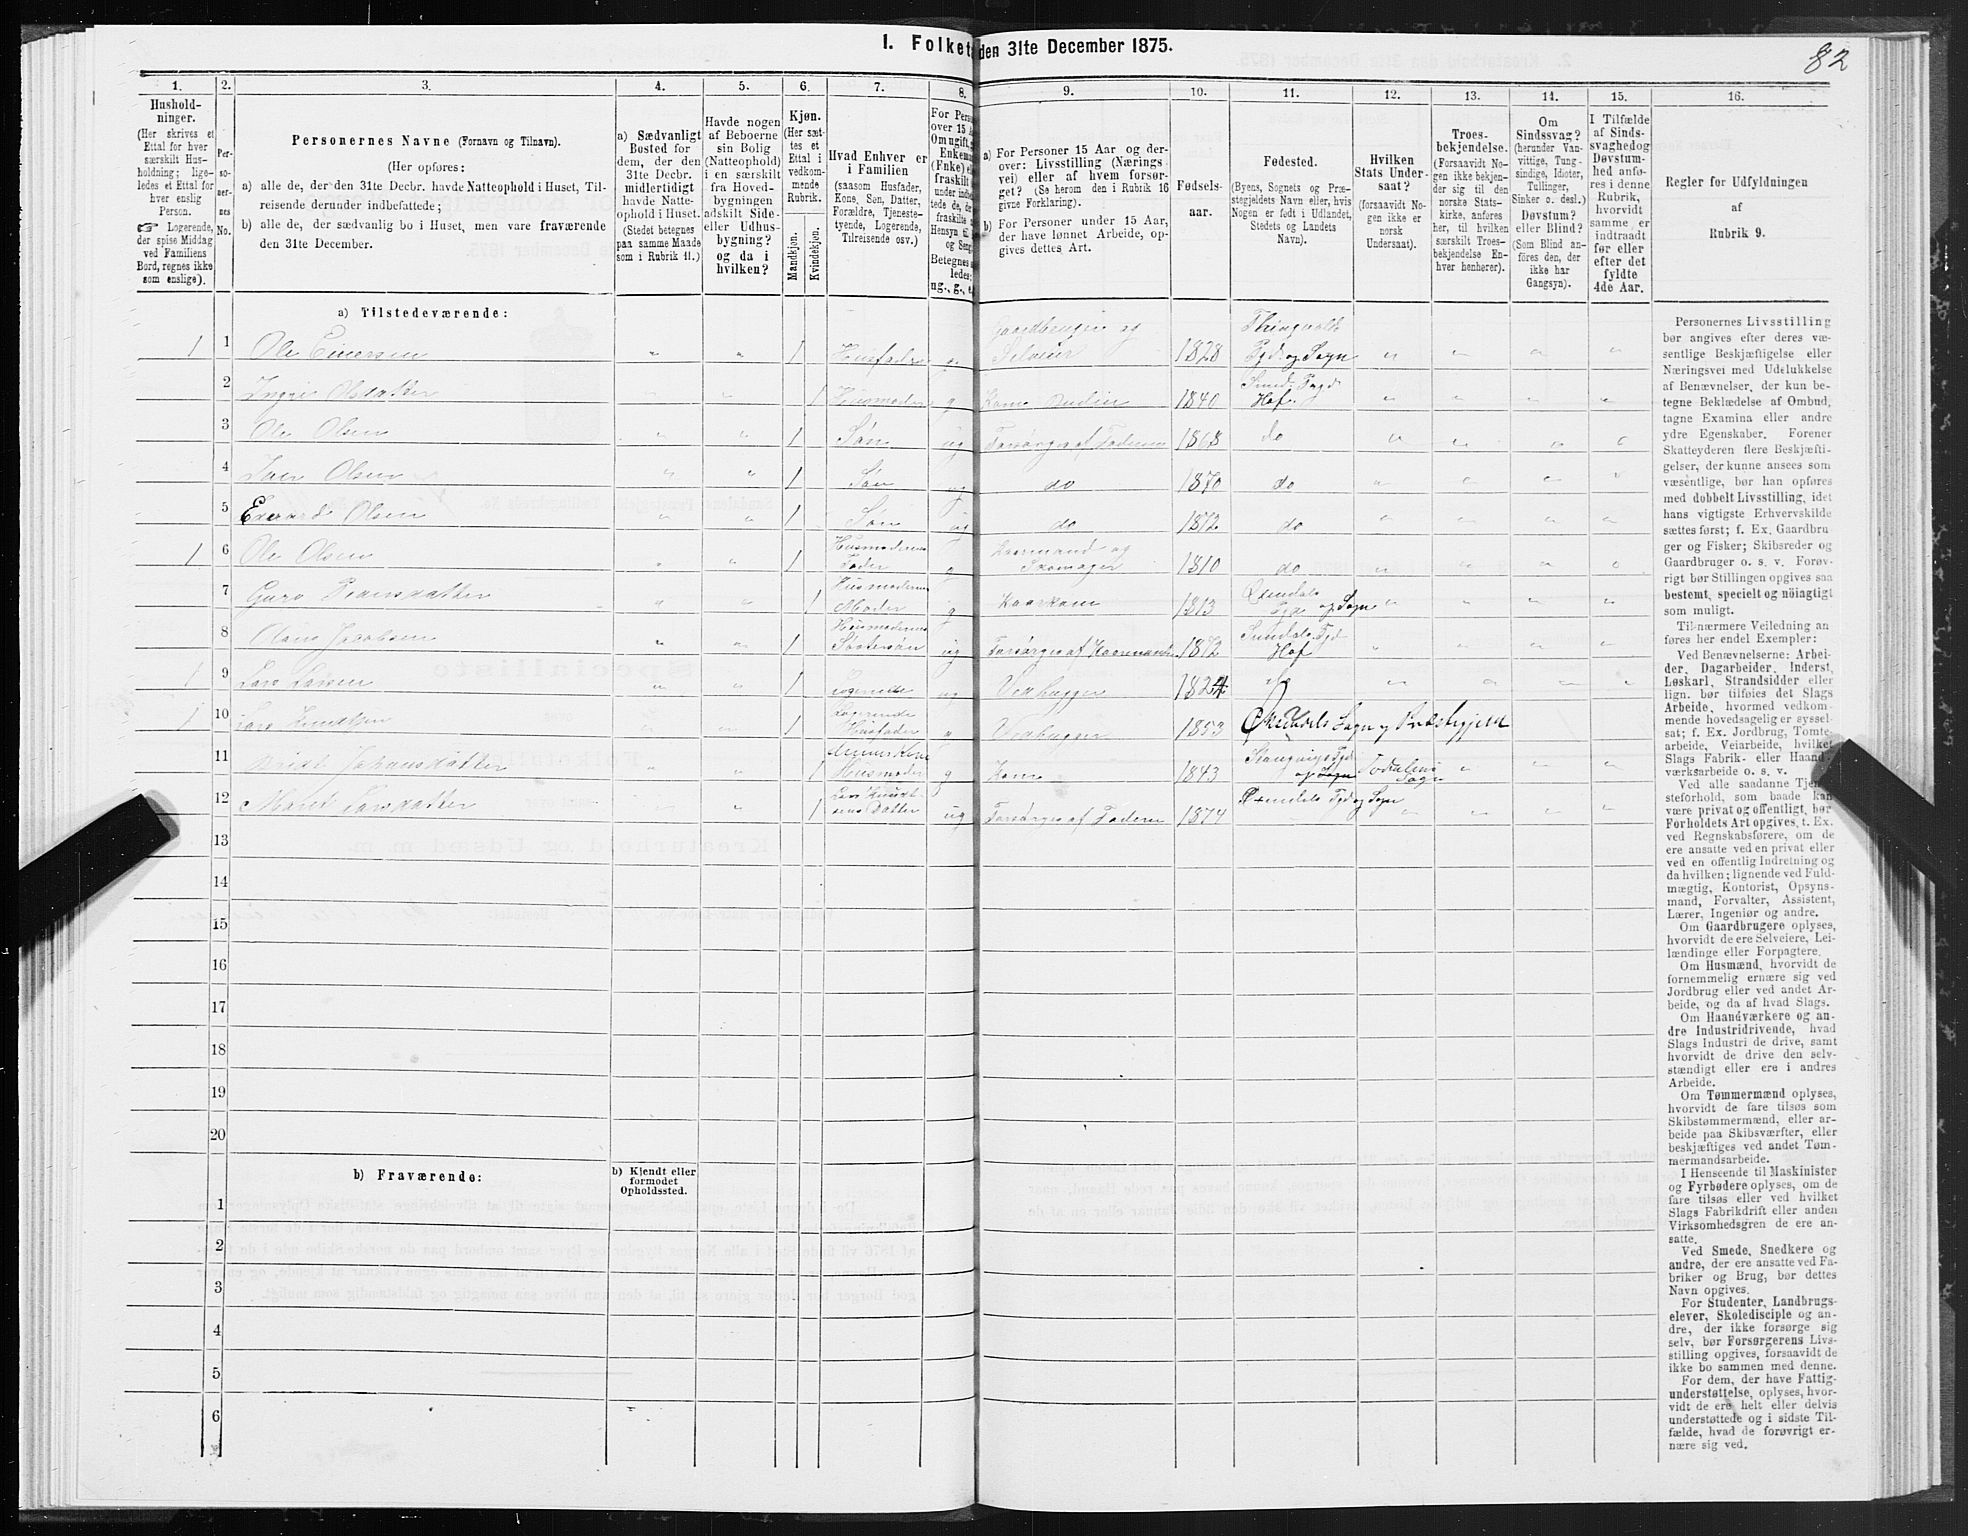 82
I. Folket den 31te December 1875.
1.
2.
3.
4.
5.
6.
7.
8.
9.
10.
11.
12.
13.
14.
15.
16.
Hushold-
ninger.
(Her skrives et
Ettal for hver
særskilt Hus-
holdning; lige-
ledes et Ettal for
hver enslig
Person.
☞ Logerende,
der spise Middag
ved Familiens
Bord, regnes ikke
som enslige).
Per-
so-
ner-
nes
No.
Personernes Navne (Fornavn og Tilnavn).
(Her opføres:
a) alle de, der den 31te Decbr. havde Natteophold i Huset, Til-
reisende derunder indbefattede;
b) alle de, der sædvanlig bo i Huset, men vare fraværende
den 31te December.
a) Sædvanligt
Bosted for
dem, der den
31te Decbr.
midlertidigt
havde Natte-
ophold i Huset.
(Stedet betegnes
paa samme Maade
som i Rubrik 11.)
Havde nogen
af Beboerne
sin Bolig
(Natteophold)
i en særskilt
fra Hoved-
bygningen
adskilt Side-
eller Udhus-
bygning?
og da i
hvilken?
Kjøn.
(Her sæt-
tes et
Ettal i
vedkom-
mende
Rubrik.
Mandkjøn.
Kvindekjøn.
Hvad Enhver er
i Familien
(saasom Husfader,
Kone, Søn, Datter,
Forældre, Tjeneste-
tyende, Logerende,
Tilreisende osv.)
For Perso
over 15 A
Om ugift, g
Enkema
(Enke) e
fraskilt
under indbe
tede de, de
fraskilte
Hensyn til
og Seng
Betegnes s
ledes:
ug., g., e
a) For Personer 15 Aar og der-
over: Livsstilling (Nærings
vei) eller af hvem forsør-
get? (Se herom den i Rubrik 16
givne Forklaring).
b) For Personer under 15 Aar,
der have lønnet Arbeide, op-
gives dettes Art.
Fødsels-
aar.
Fødested.
(Byens, Sognets og Præ-
stegjeldets Navn eller, hvis
Nogen er født i Udlandet,
Stedets og Landets
Navn).
Hvilken
Stats Under-
saat?
(forsaavidt No-
gen ikke er
norsk
Undersaat).
Troes-
bekjendelse.
(Forsaavidt No-
gen ikke bekjen-
der sig til den
norske Stats-
kirke, anføres
her, til hvilken
særskilt Troes-
bekjendelse En-
hver henhører).
Om
Sindssvag?
(herunder Van-
vittige, Tung-
sindige, Idioter,
Tullinger,
Sinker o. desl.)
Døvstum?
eller Blind?
(Som Blind an-
føres den, der
ikke har
Gangsyn).
I Tilfælde
af Sinds-
svaghedog
Døvstum-
hed anfø-
res i denne
Rubrik,
hvorvidt
samme er
indtraadt
før eller
efter det
fyldte
4de Aar.
Regler for Udfyldningen
af
Rubrik 9.
a) Tilstedeværende:
1 1 Ole Einersen " " 1 Husfader g Gaardbruger og Selveier 1828 Thingvolds Pgd og Sogn
2 1 Husmoder g Kone 1840 Pgd Hof
3 Ole Olsen " " 1 Søn ug Forsørges af Faderen 1868 do
4 Iver Olsen " " 1 Søn ug do 1870 do
5 Edvard Olsen " " 1 Søn ug do 1872 do
1 6 Ole Olsen " " 1 Husmoderens Fader g Kaarmand og Skomager 1810 do
7 Guro " " 1 Husmoderens Moder g Kaarkone 1813 Øxendals Pgd og Sogn
8 Jacobsen " " 1 Husmoderens Søstersøn ug Forsørges af Kaarmanden 1872 Sundals Pgd Hof
1 9 Lars Larsen " " 1 Logerende ug Vedhugger 1824 do
1 10 Lars Knudtsen " " 1 Logerende Husfader g Vedhugger 1853 Øksendals Sogn og Præstegjeld
11 Johansdatter " " 1 dennes Kone Husmoder g Kone 1843 Stangvigs Pgd og Sogn Todalens Sogn
12 Marit Larsdatter " " 1 Lars Knudtsens Datter ug Forsørges af Faderen 1874 Øxendals Pgd og Sogn
13
14
15
16
17
18
19
20
b) Fraværende:
b) Kjendt eller
formodet
Opholdssted.
1
2
3
4
5
6
Personernes Livsstilling
bør angives efter deres væ-
sentlige Beskjæftigelse eller
Næringsvei med Udelukkelse
af Benævnelser, der kun be-
tegne Beklædelse af Ombud,
tagne Examina eller andre
ydre Egenskaber. Forener
Skatteyderen flere Beskjæfti-
gelser, der kunne ansees som
væsentlige, bør han opføres
med dobbelt Livsstilling, idet
hans vigtigste Erhvervskilde
sættes først; f. Ex. Gaardbru
ger og Fisker; Skibsreder og
Gaardbruger o. s. v. Forøv-
rigt bør Stillingen opgives saa
bestemt, specielt og nöiagtigt
som muligt.
Til nærmere Veiledning an
føres her endel Exempler:
Ved Benævnelserne: Arbei-
der, Dagarbeider, Inderst,
Løskarl, Strandsidder eller
lign. bør tilføies det Slags
Arbeide, hvormed vedkom-
mende hovedsagelig er syssel-
sat; f. Ex. Jordbrug, Tomte-
arbeide, Veiarbeide, hvilket
Slags Fabrik- eller Haand-
værksarbeide o. s. v.
Ved alle saadanne Tjen
steforhold, som baade kan
være privat og offentligt, bør
Forholdets Art opgives, t. Ex.
ved Regnskabsførere, om de
ere ansatte ved en privat eller
ved en offentlig Indretning og
da hvilken; lignende ved Fuld-
mægtig, Kontorist, Opsyns-
mand, Forvalter, Assistent,
Lærer, Ingeniør og andre.
Om Gaardbrugere oplyses,
hvorvidt de ere Selveiere, Lei-
lændinge eller Forpagtere.
Om Husmænd, hvorvidt de
fornemmelig ernære sig ved
Jordbrug eller ved andet Ar-
beide, og da af hvad Slags.
Om Haandværkere og an-
dre Industridrivende, hvad
Slags Industri de drive, samt
hvorvidt de drive den selv-
stændigt eller ere i andres
Arbeide.
Om Tømmermænd oplyses,
hvorvidt de fare tilsøs som
Skibstømmermænd, eller ar-
beide paa Skibsværfter, eller
beskjæftiges ved andet Tøm-
mermandsarbeide.
I Henseende til Maskinister
og Fyrbødere oplyses, om de
fare tilsøs eller ved hvilket
Slags Fabrikdrift eller anden
Virksomhedsgren de ere an-
satte.
Ved Smede, Snedkere og
andre, der ere ansatte ved Fa-
briker og Brug, bør dettes
Navn opgives.
For Studenter, Landbrugs-
elever, Skoledisciple og an-
dre, der ikke forsørge sig
selv, bør Forsørgerens Livs-
stilling opgives, forsaavidt de
ikke bo sammen med denne.
For dem, der have Fattig-
understøttelse, oplyses, hvor-
vidt de ere helt eller delvis
understøttede og i sidste Til-
fælde, hvad de forøvrigt er-
nære sig ved.